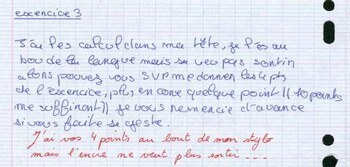 exercice 3
J'ai les calcul dans ma tête, je l'es au
bou de la langue mais sa veu pas sortir
alors pouvez vous SVP me donner les 4 pts
de l'exercice, pts, en core quelque point || 10 points
me suffiront || je vous remercie d'avance
si vous faite se geste.
J'ai vos 4 points au bout de mon stylo
mais l'encre ne veut plus sortir...